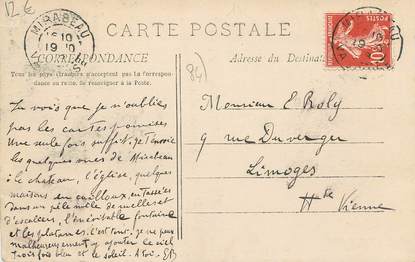 12€
MIRABEAU
CARTE POSTALE
CORRESPONDANCE
Adresse du Destinataire
Tous les pays étrangers n'acceptent pas la correspon-
dance au recto. Se renseigner à la Poste.
84
Tu vois que je n'oublies
pas les cartes promises
Une seule fois suffit; je t'envoie
les quelques vues de Mirabeau
: le chateau, l'église, quelques
maisons en cailloux, entassées
dans un pêle mêle de ruelles et
d'escaliers, l'inévitable fontaine
et les platanes. c'est tout. je ne peux
malheureusement y ajouter le ciel
bleu et le soleil. A toi. EB
Monsieur E Boly
9 rue Duverger
Limoges
Hte Vienne